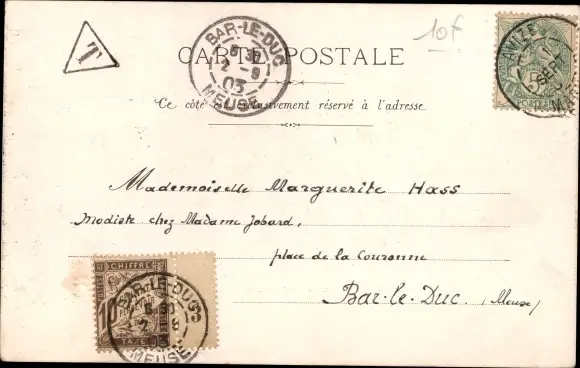 T
BAR-LE-DUC
2 - 9
03
MEUSE
10F
AVIZE
SEPT
5
POSTES
CARTE POSTALE
Ce côté est exclusivement réservé à l'adresse
Mademoiselle Marguerite Hass
modiste chez Madame Jobard,
place de la Couronne
Bar-le-Duc. (Meuse)
CHIFFRE
10
TAXE
BAR-LE-DUC
2 9
03
MEUSE
3